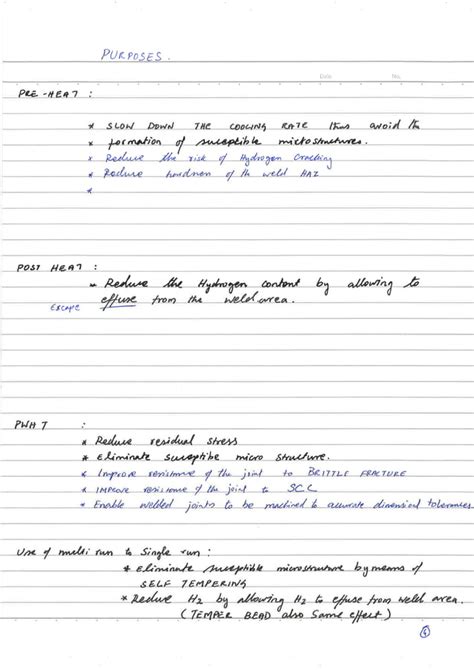 PURPOSES.
Date No.
PRE-HEAT :
* SLOW DOWN THE COOLING RATE thus avoid the
* formation of susceptible microstructures.
* Reduce the risk of Hydrogen Cracking
* Reduce hardness of the weld HAZ
*
POST HEAT :
* Reduce the Hydrogen content by allowing to
effuse from the weld area.
Escape
PWHT :
* Reduce residual stress
* Eliminate susceptibe micro structure.
* Improve resistance of the joint to BRITTLE FRACTURE
* IMPROVE resistence of the joint to SCC
* Enable welded joints to be machined to accurate dimensional tolerances.
Use of multi run to Single run :
* Eliminate susceptible microstructure by means of
SELF TEMPERING
* Reduce H2 by allowing H2 to effuse from weld area.
(TEMPER BEAD also Same effect)